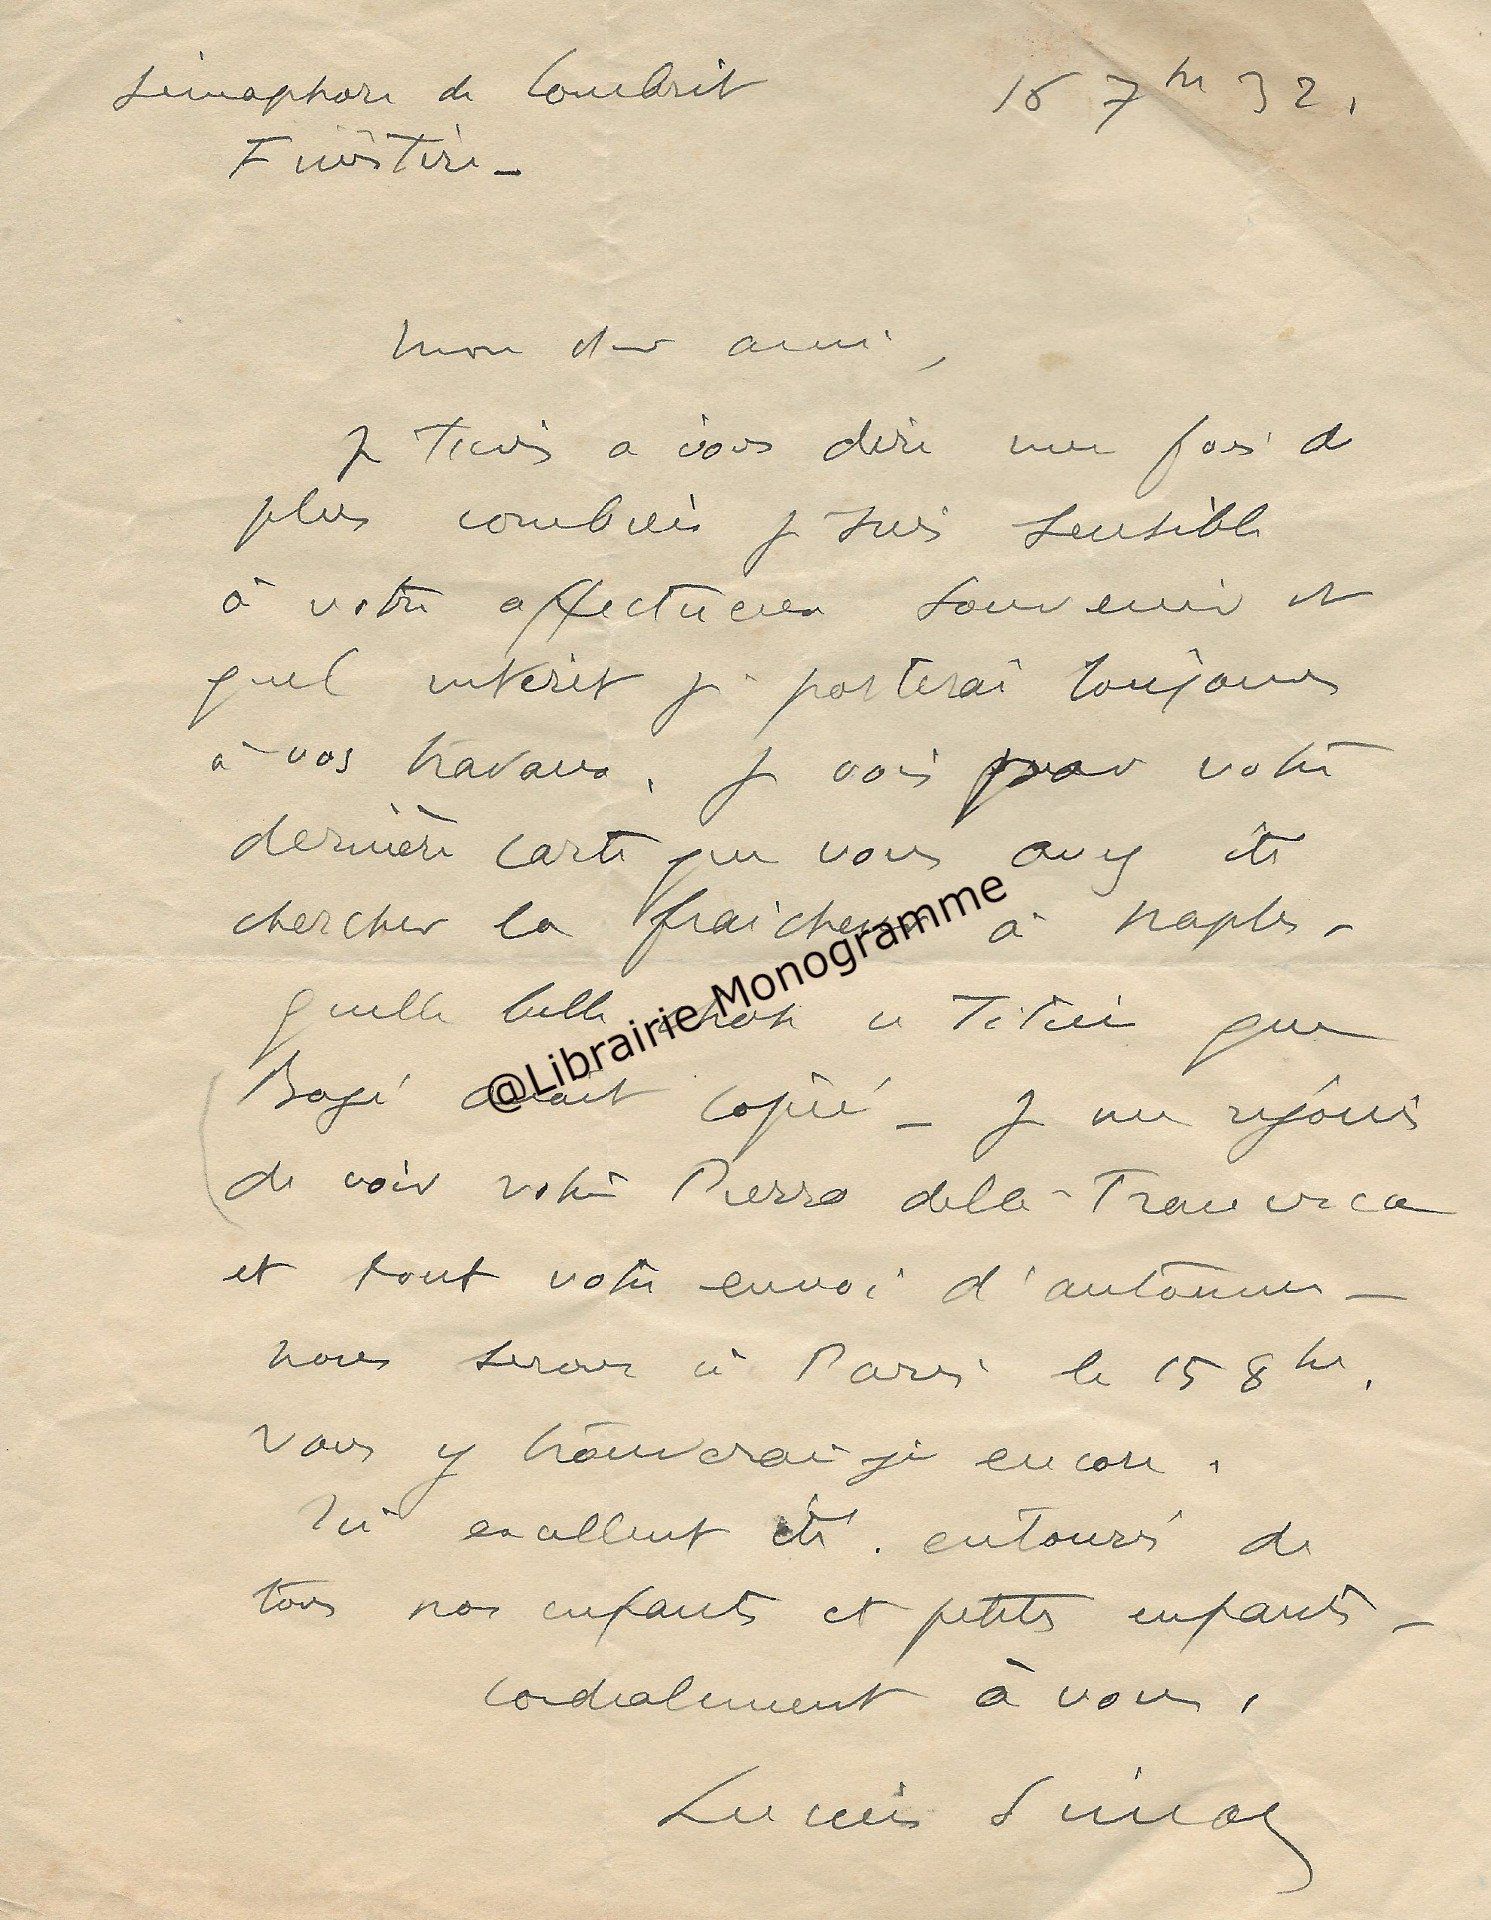 Sémaphore de Combrit 16 7bre 32.
Finistère -
Mon cher ami,
Je tiens à vous dire une fois de
plus combien je suis sensible
à votre affectueux souvenir et
quel intérêt je porterai toujours
à vos travaux. Je vois par votre
dernière carte que vous avez été
chercher la fraîcheur à Naples -
quelle belle chose ce Titien que
Bagé avait copié - Je me réjouis
de voir votre Pierro della Francesca
et tout votre envoi d'automne -
nous serons à Paris le 15 8bre.
Vous y trouverai-je encore.
Ici excellent été. entourés de
tous nos enfants et petits enfants -
Cordialement à vous,
Lucien Simon
@Librairie Monogramme